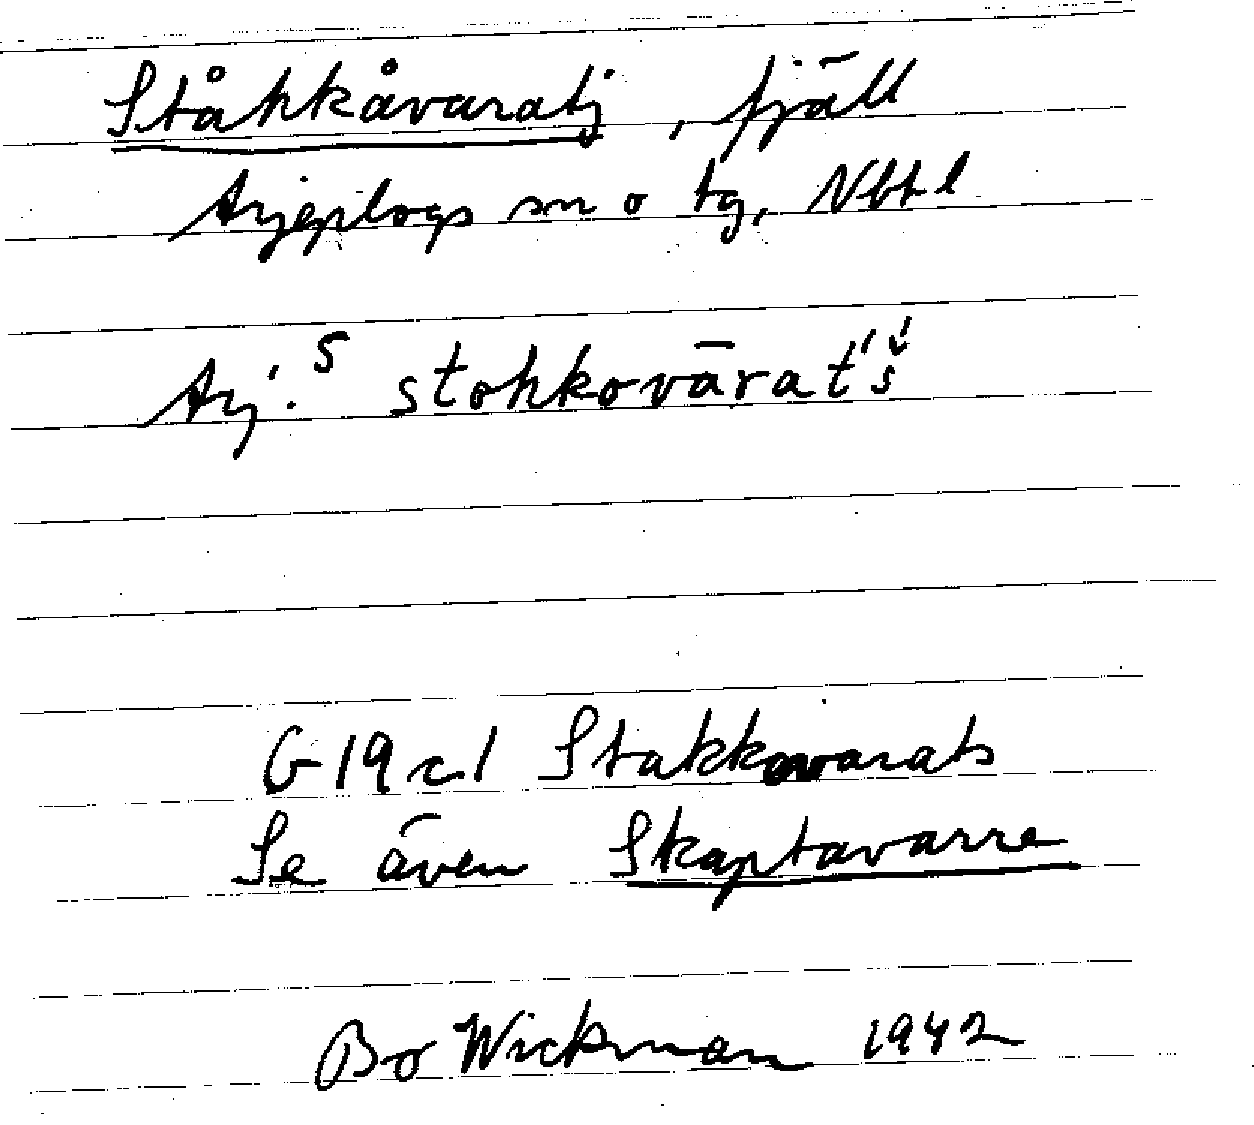 Ståhkåvaratj, fjäll
Arjeplogs sn o tg, Nbtl
Arj. S stohkovārat'š́
G 19 c1 Stakkovarats
Se även Skaptavarre
Bo Wickman 1942